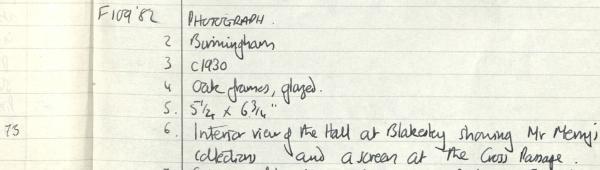 F109'82 PHOTOGRAPH.
2 Birmingham
3 c1930
4 Oak frames, glazed.
5. 5 1/4 x 6 3/4"
75 6. Interior view of the Hall at Blakesley showing Mr Merry's
collections and a screen at the Cross Passage.